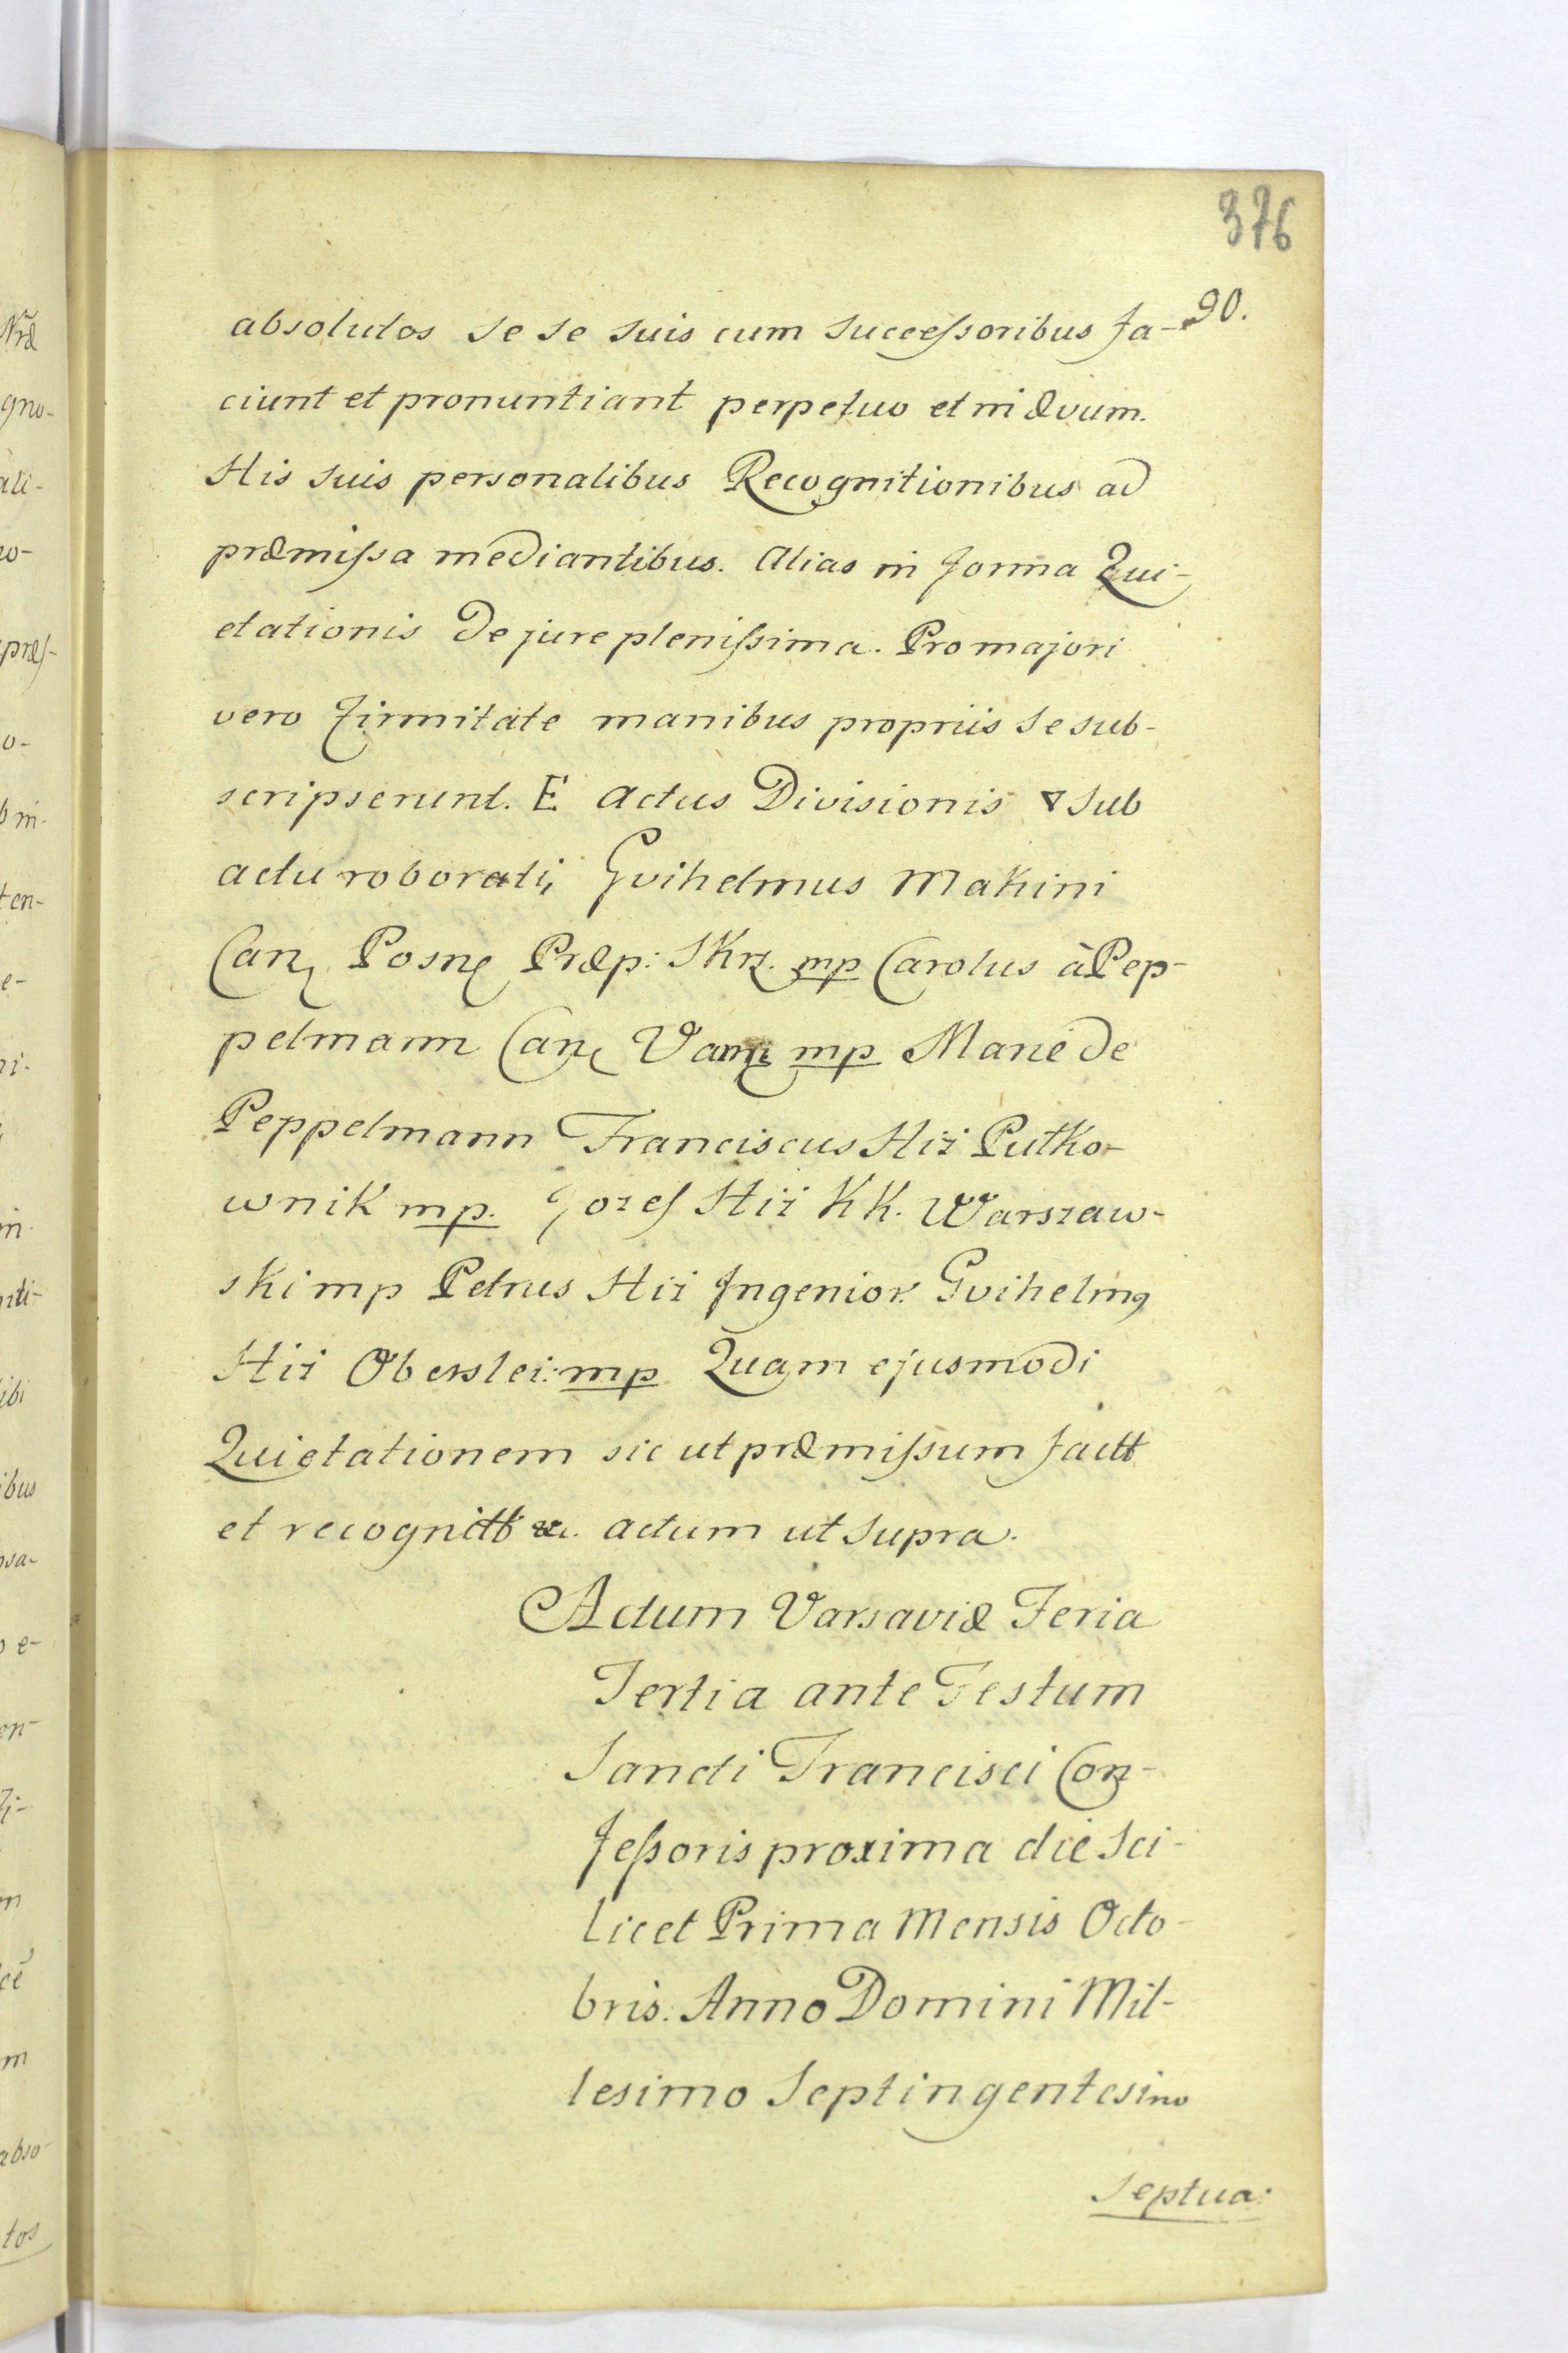 376
90.
absolutos se se suis cum successoribus fa-
ciunt et pronuntiant perpetuo et in ævum.
His suis personalibus Recognitionibus ad
præmissa mediantibus. Alias in forma Qui-
etationis de jure plenissima. Pro majori
vero firmitate manibus propriis se sub-
scripserunt. E actus Divisionis & sub
actu roborati, Gvihelmus Makini
Can, Posn, Præp: Skrz. mp Carolus à Pep-
pelmann Can, Varm, mp Marie de
Peppelmann Franciscus Hiż Pułko-
wnik mp. Jozef Hiż KK. Warszaw-
ski mp Petrus Hiż Ingenior. Gvihelmꝯ
Hiż Oberslei: mp Quam ejusmodi
Quietationem sic ut præmissum factt
et recognitt &c. actum ut supra.
Actum Varsaviæ Feria
Tertia ante Festum
Sancti Francisci Con-
fessoris proxima die sci-
licet Prima Mensis Octo-
bris. Anno Domini Mil-
lesimo Septingentesimo
Septua: